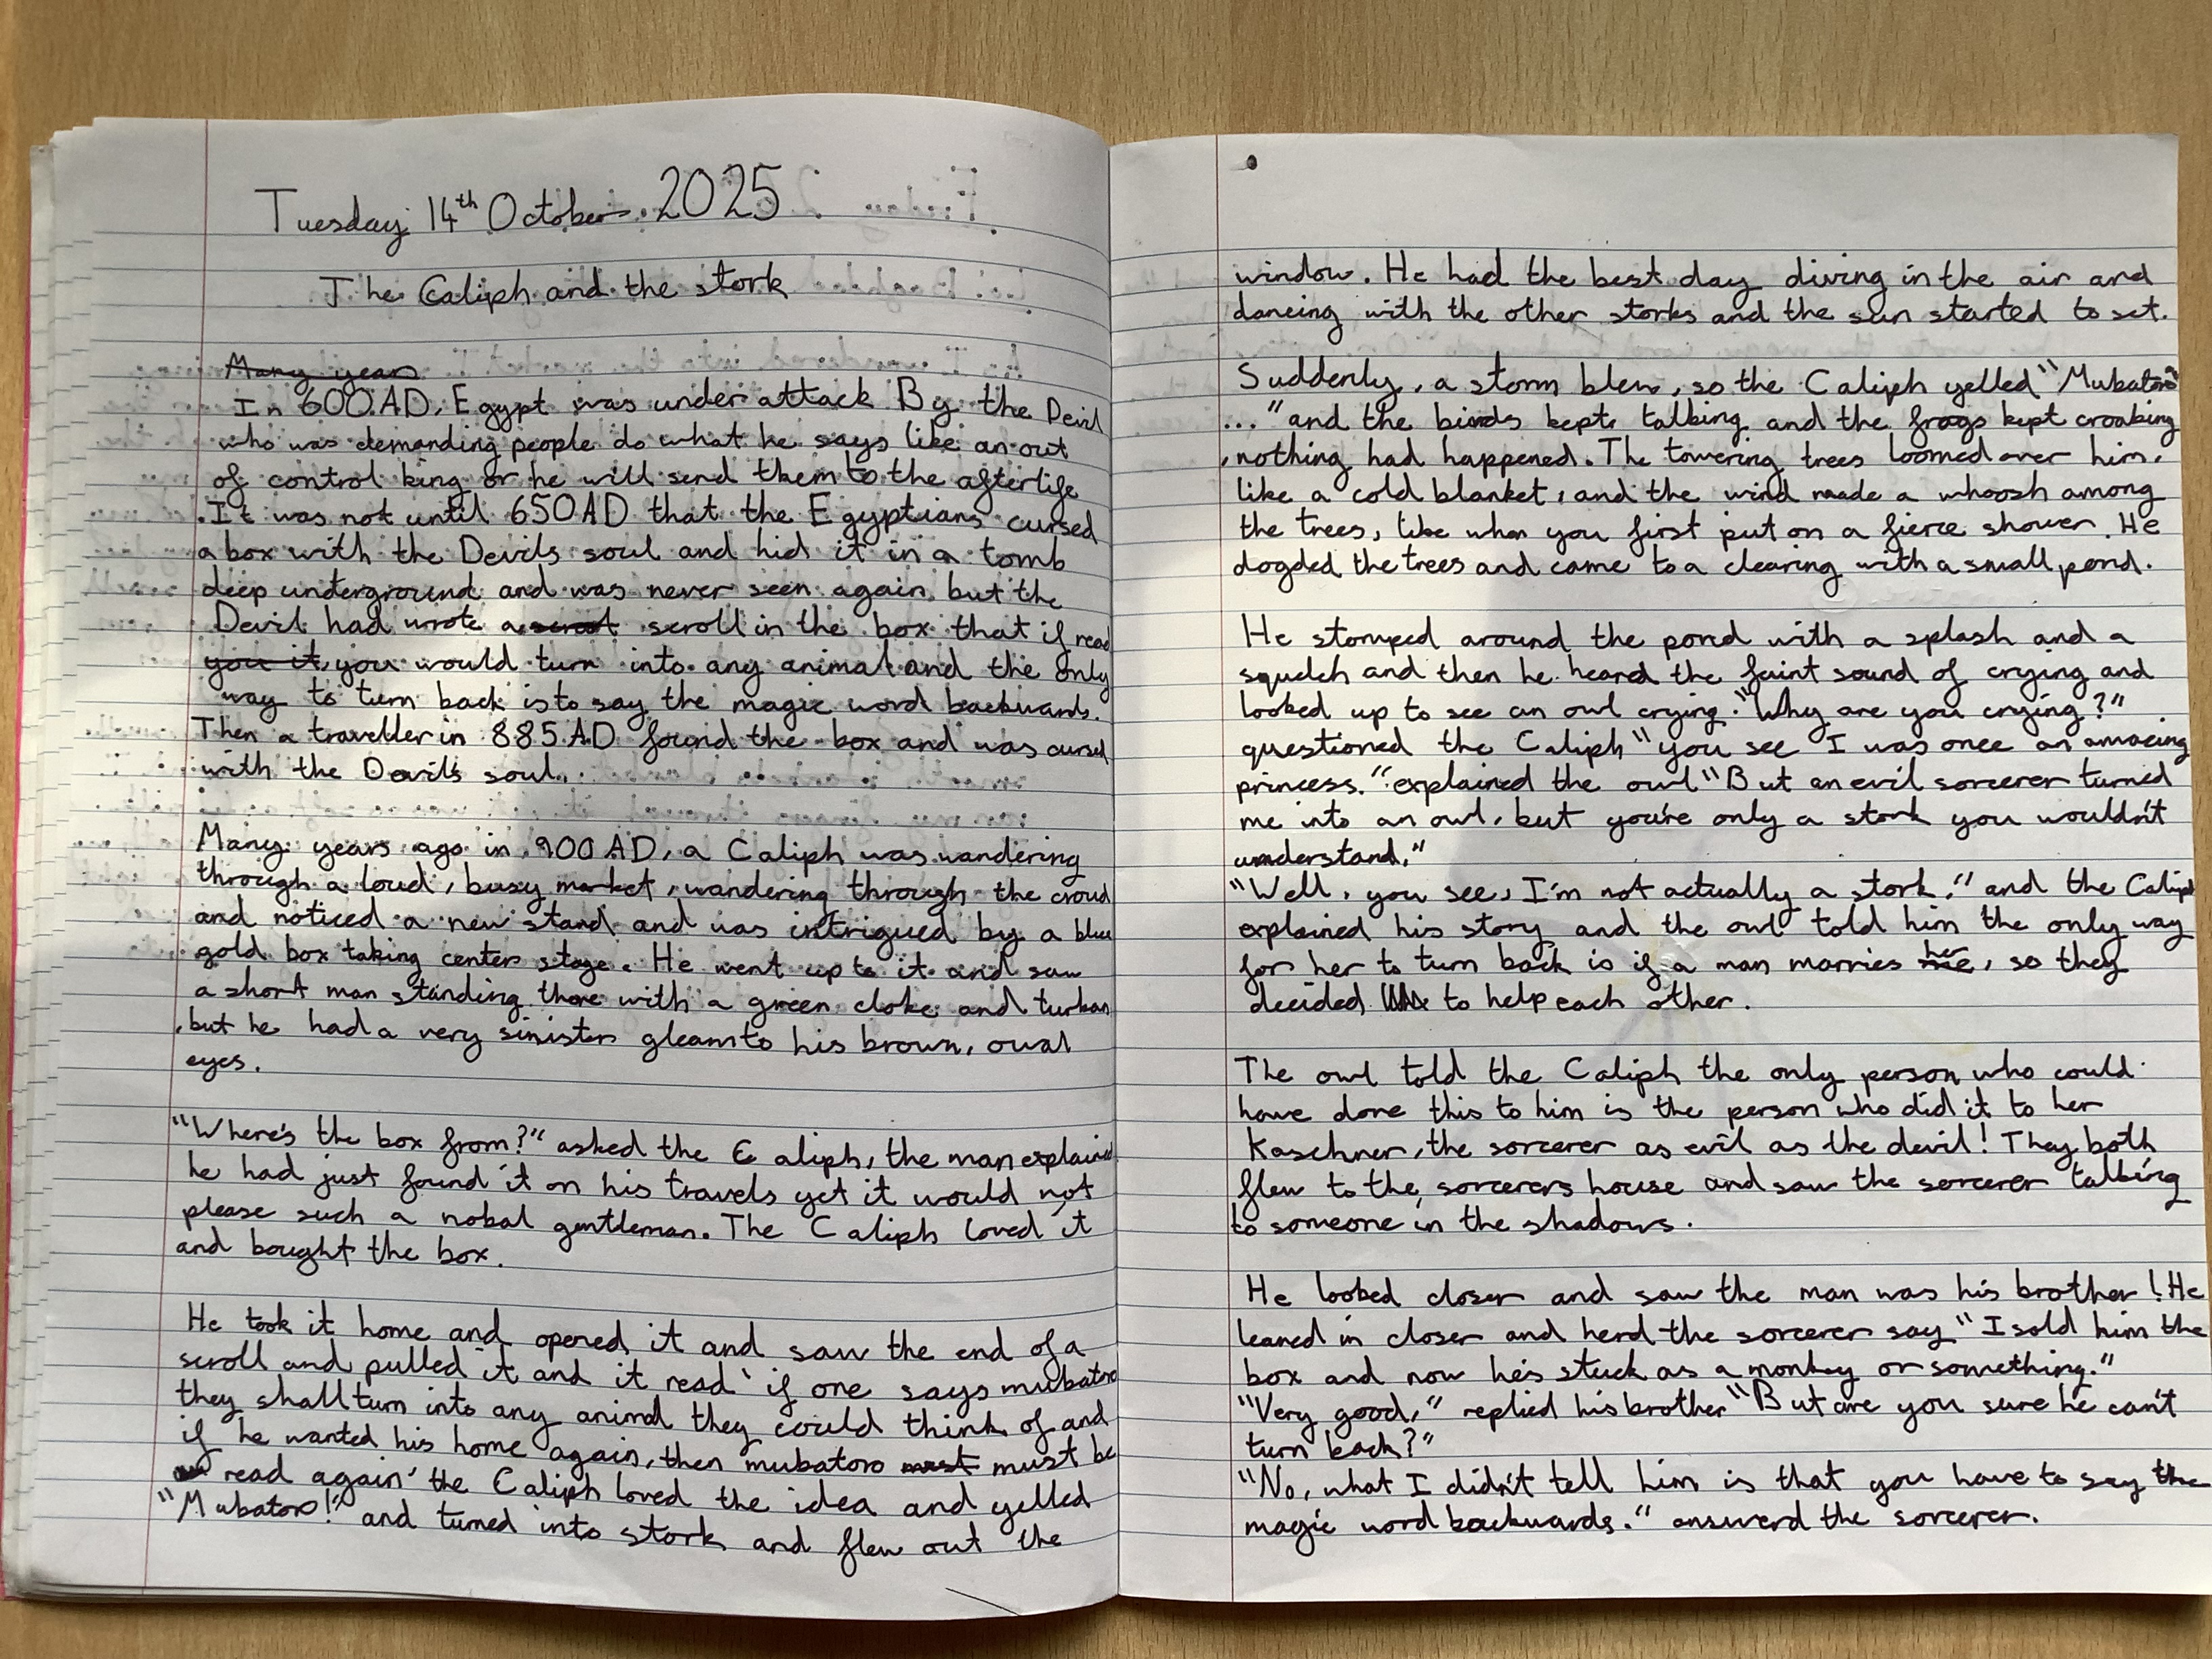 Tuesday 14th October 2025
The Caliph and the stork
Many years
In 600AD, Egypt was under attack By the Devil
who was demanding people do what he says like an out
of control king or he will send them to the afterlife
. It was not until 650AD that the Egyptians cursed
a box with the Devils soul and hid it in a tomb
deep underground and was never seen again, but the
Devil had wrote a scroll in the box that if read
you it, you would turn into any animal and the only
way to turn back is to say the magic word backwards.
Then a traveller in 885AD found the box and was cursed
with the Devil's soul...
Many years ago in 900AD, a Caliph was wandering
through a loud, busy market, wandering through the croud
and noticed a new stand and was intrigued by a blue
gold box taking center stage. He went up to it and saw
a short man standing there with a green cloke and turban
, but he had a very sinister gleam to his brown, oval
eyes.
"Where's the box from?" asked the Caliph, the man explained
he had just found it on his travels yet it would not
please such a nobal gentleman. The Caliph loved it
and bought the box.
He took it home and opened it and saw the end of a
scroll and pulled it and it read 'if one says mubatoro
they shall turn into any animal they could think of and
if he wanted his home again, then mubatoro must must be
read again' the Caliph loved the idea and yelled
"Mubatoro!" and turned into stork and flew out the
window. He had the best day diving in the air and
dancing with the other storks and the sun started to set.
Suddenly, a storm blew, so the Caliph yelled "Mubatoro
..." and the birds kept talking and the frogs kept croaking
, nothing had happened. The towering trees loomed over him,
like a cold blanket, and the wind made a whoosh among
the trees, like when you first put on a fierce shower. He
dogded the trees and came to a clearing with a small pond.
He stomped around the pond with a splash and a
squelch and then he heared the faint sound of crying and
looked up to see an owl crying. "Why are you crying?"
questioned the Caliph "you see I was once an amazing
princess." explained the owl "But an evil sorcerer turned
me into an owl, but you're only a stork you wouldn't
understand."
"Well, you see, I'm not actually a stork." and the Caliph
explained his story and the owl told him the only way
for her to turn back is if a man marries me her, so they
decided to help each other.
The owl told the Caliph the only person who could
have done this to him is the person who did it to her
Kaschner, the sorcerer as evil as the devil! They both
flew to the sorcerers house and saw the sorcerer talking
to someone in the shadows.
He looked closer and saw the man was his brother! He
leaned in closer and herd the sorcerer say "I sold him the
box and now he's stuck as a monkey or something."
"Very good," replied his brother "But are you sure he can't
turn back?"
"No, what I didn't tell him is that you have to say the
magic word backwards." answerd the sorcerer.